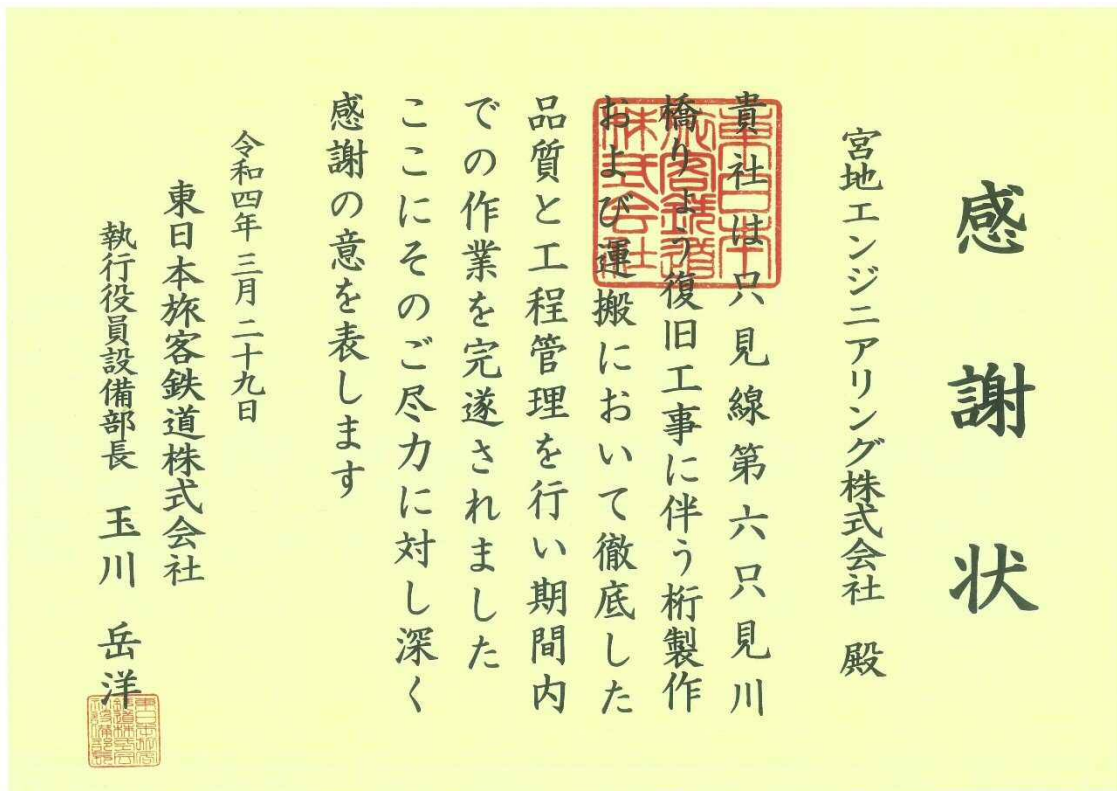 感謝状
宮地エンジニアリング株式会社 殿
貴社は只見線第六只見川
橋りょう復旧工事に伴う桁製作
および運搬において徹底した
品質と工程管理を行い期間内
での作業を完遂されました
ここにそのご尽力に対し深く
感謝の意を表します
令和四年三月二十九日
東日本旅客鉄道株式会社
執行役員設備部長 玉川 岳洋
東日本
旅客鉄道
株式会社